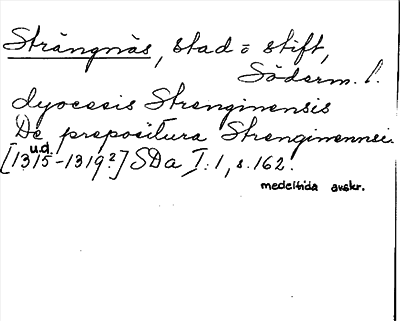 Strängnäs, stad o stift,
Söderm. l.
dyocesis Strenginensis
De prepositura Strenginensi
u.d.
[1315-1319?] SDa I:1, s. 162.
medeltida avskr.